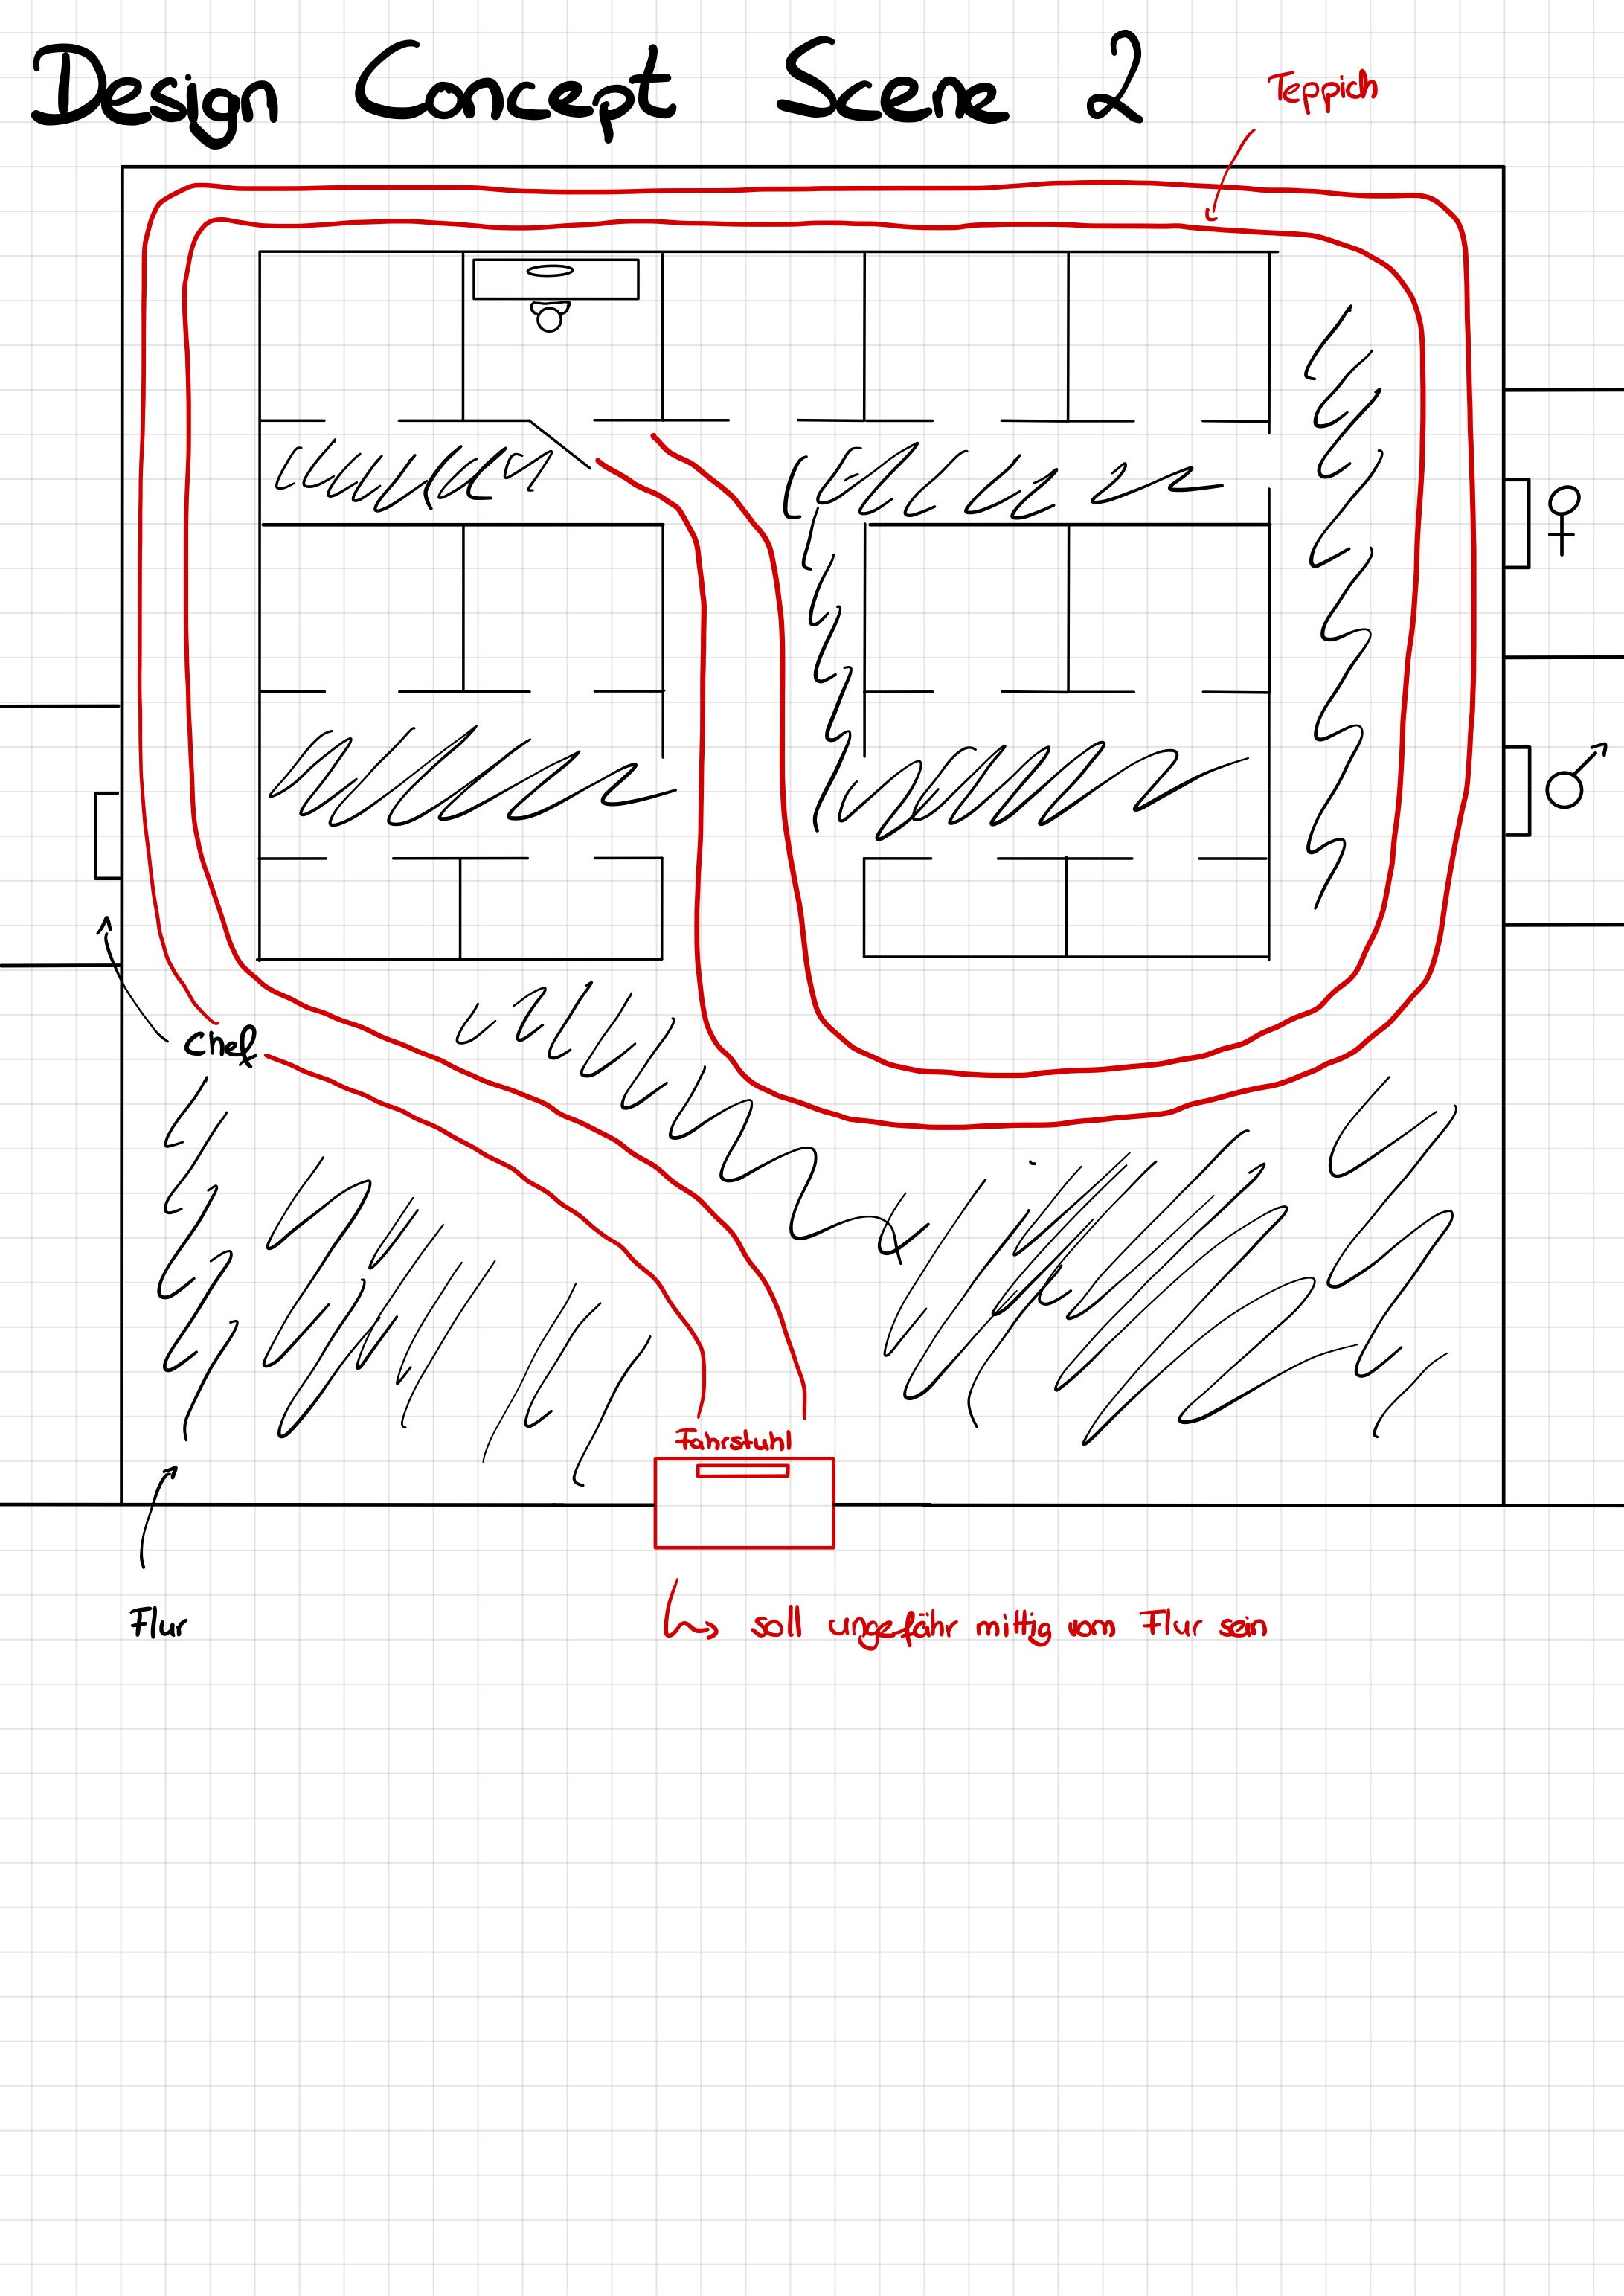 Design Concept Scene 2
Teppich
♀
♂
Chef
Fahrstuhl
Flur
soll ungefähr mittig vom Flur sein